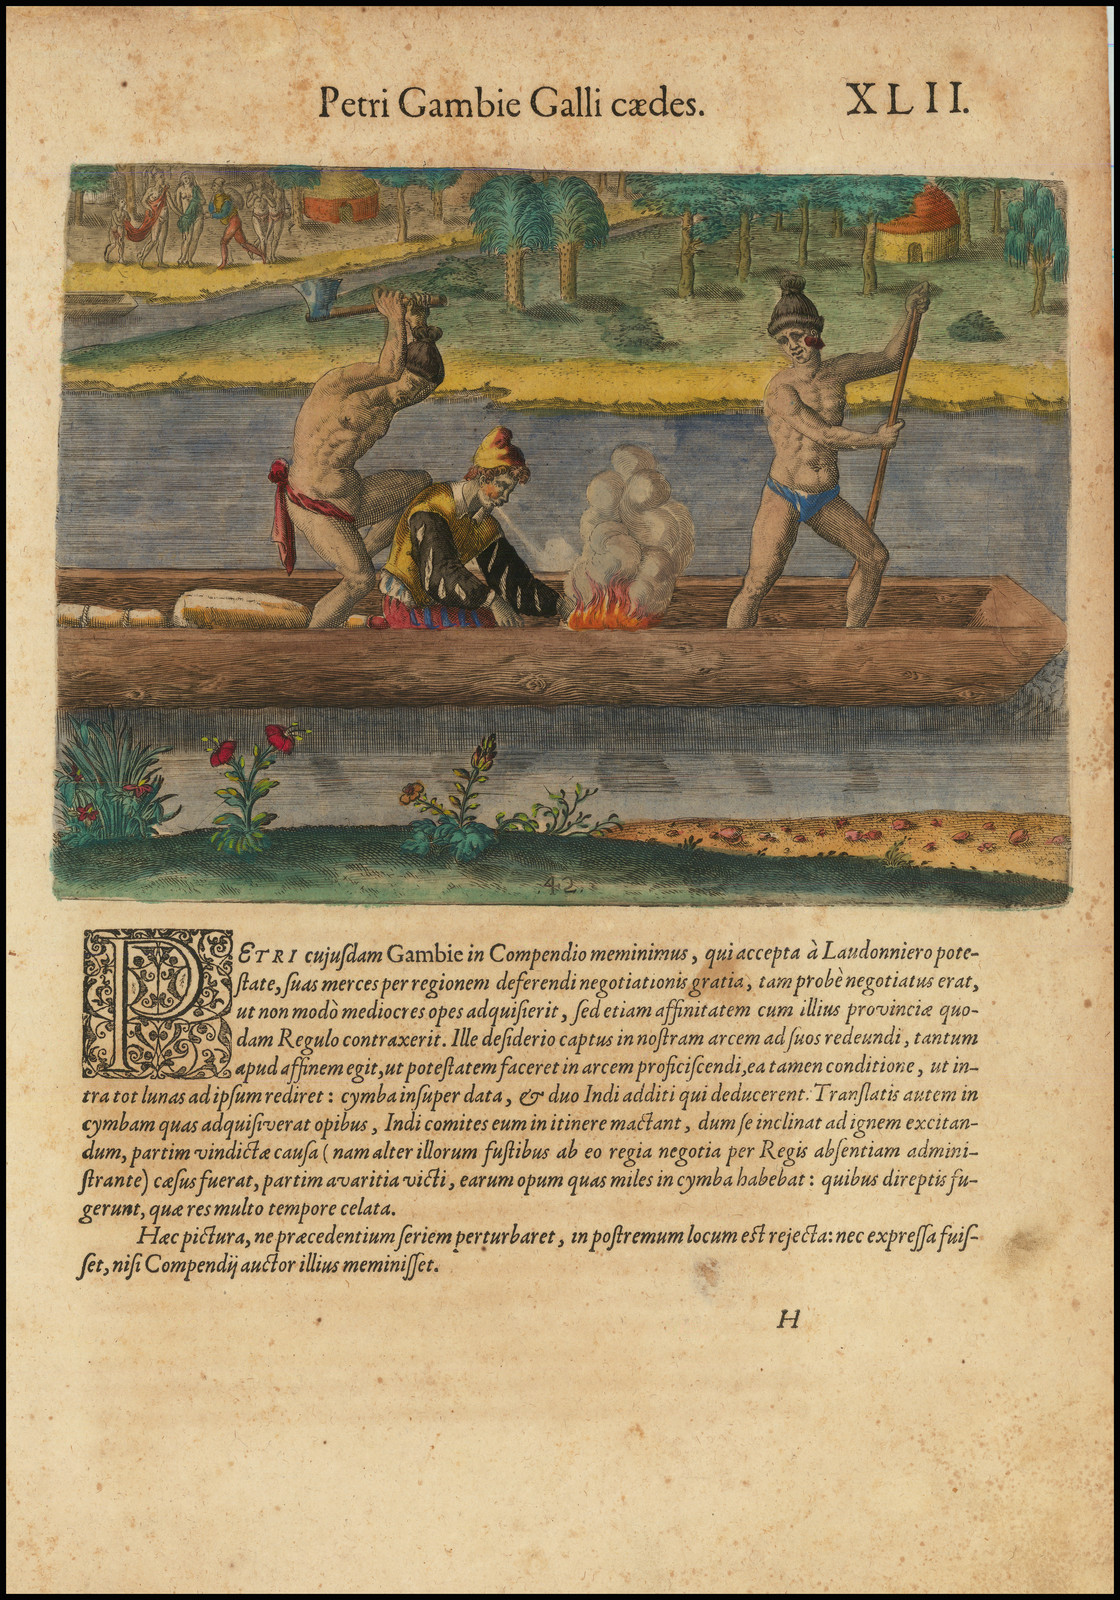 Petri Gambie Galli cædes.
XLII.
42.
PETRI cujuſdam Gambie in Compendio meminimus, qui accepta à Laudonniero pote-
ſtate, ſuas merces per regionem deferendi negotiationis gratia, tam probè negotiatus erat,
ut non modò mediocres opes adquiſierit, ſed etiam affinitatem cum illius provinciæ quo-
dam Regulo contraxerit. Ille deſiderio captus in noſtram arcem ad ſuos redeundi, tantum
apud affinem egit, ut poteſtatem faceret in arcem proficiſcendi, ea tamen conditione, ut in-
tra tot lunas ad ipſum rediret: cymba inſuper data, & duo Indi additi qui deducerent. Tranſlatis autem in
cymbam quas adquiſiverat opibus, Indi comites eum in itinere mactant, dum ſe inclinat ad ignem excitan-
dum, partim vindictæ cauſa (nam alter illorum fuſtibus ab eo regia negotia per Regis abſentiam admini-
ſtrante) cæſus fuerat, partim avaritia victi, earum opum quas miles in cymba habebat: quibus direptis fu-
gerunt, quæ res multo tempore celata.
Hæc pictura, ne præcedentium ſeriem perturbaret, in poſtremum locum eſt rejecta: nec expreſſa fuiſ-
ſet, niſi Compendij auctor illius meminiſſet.
H